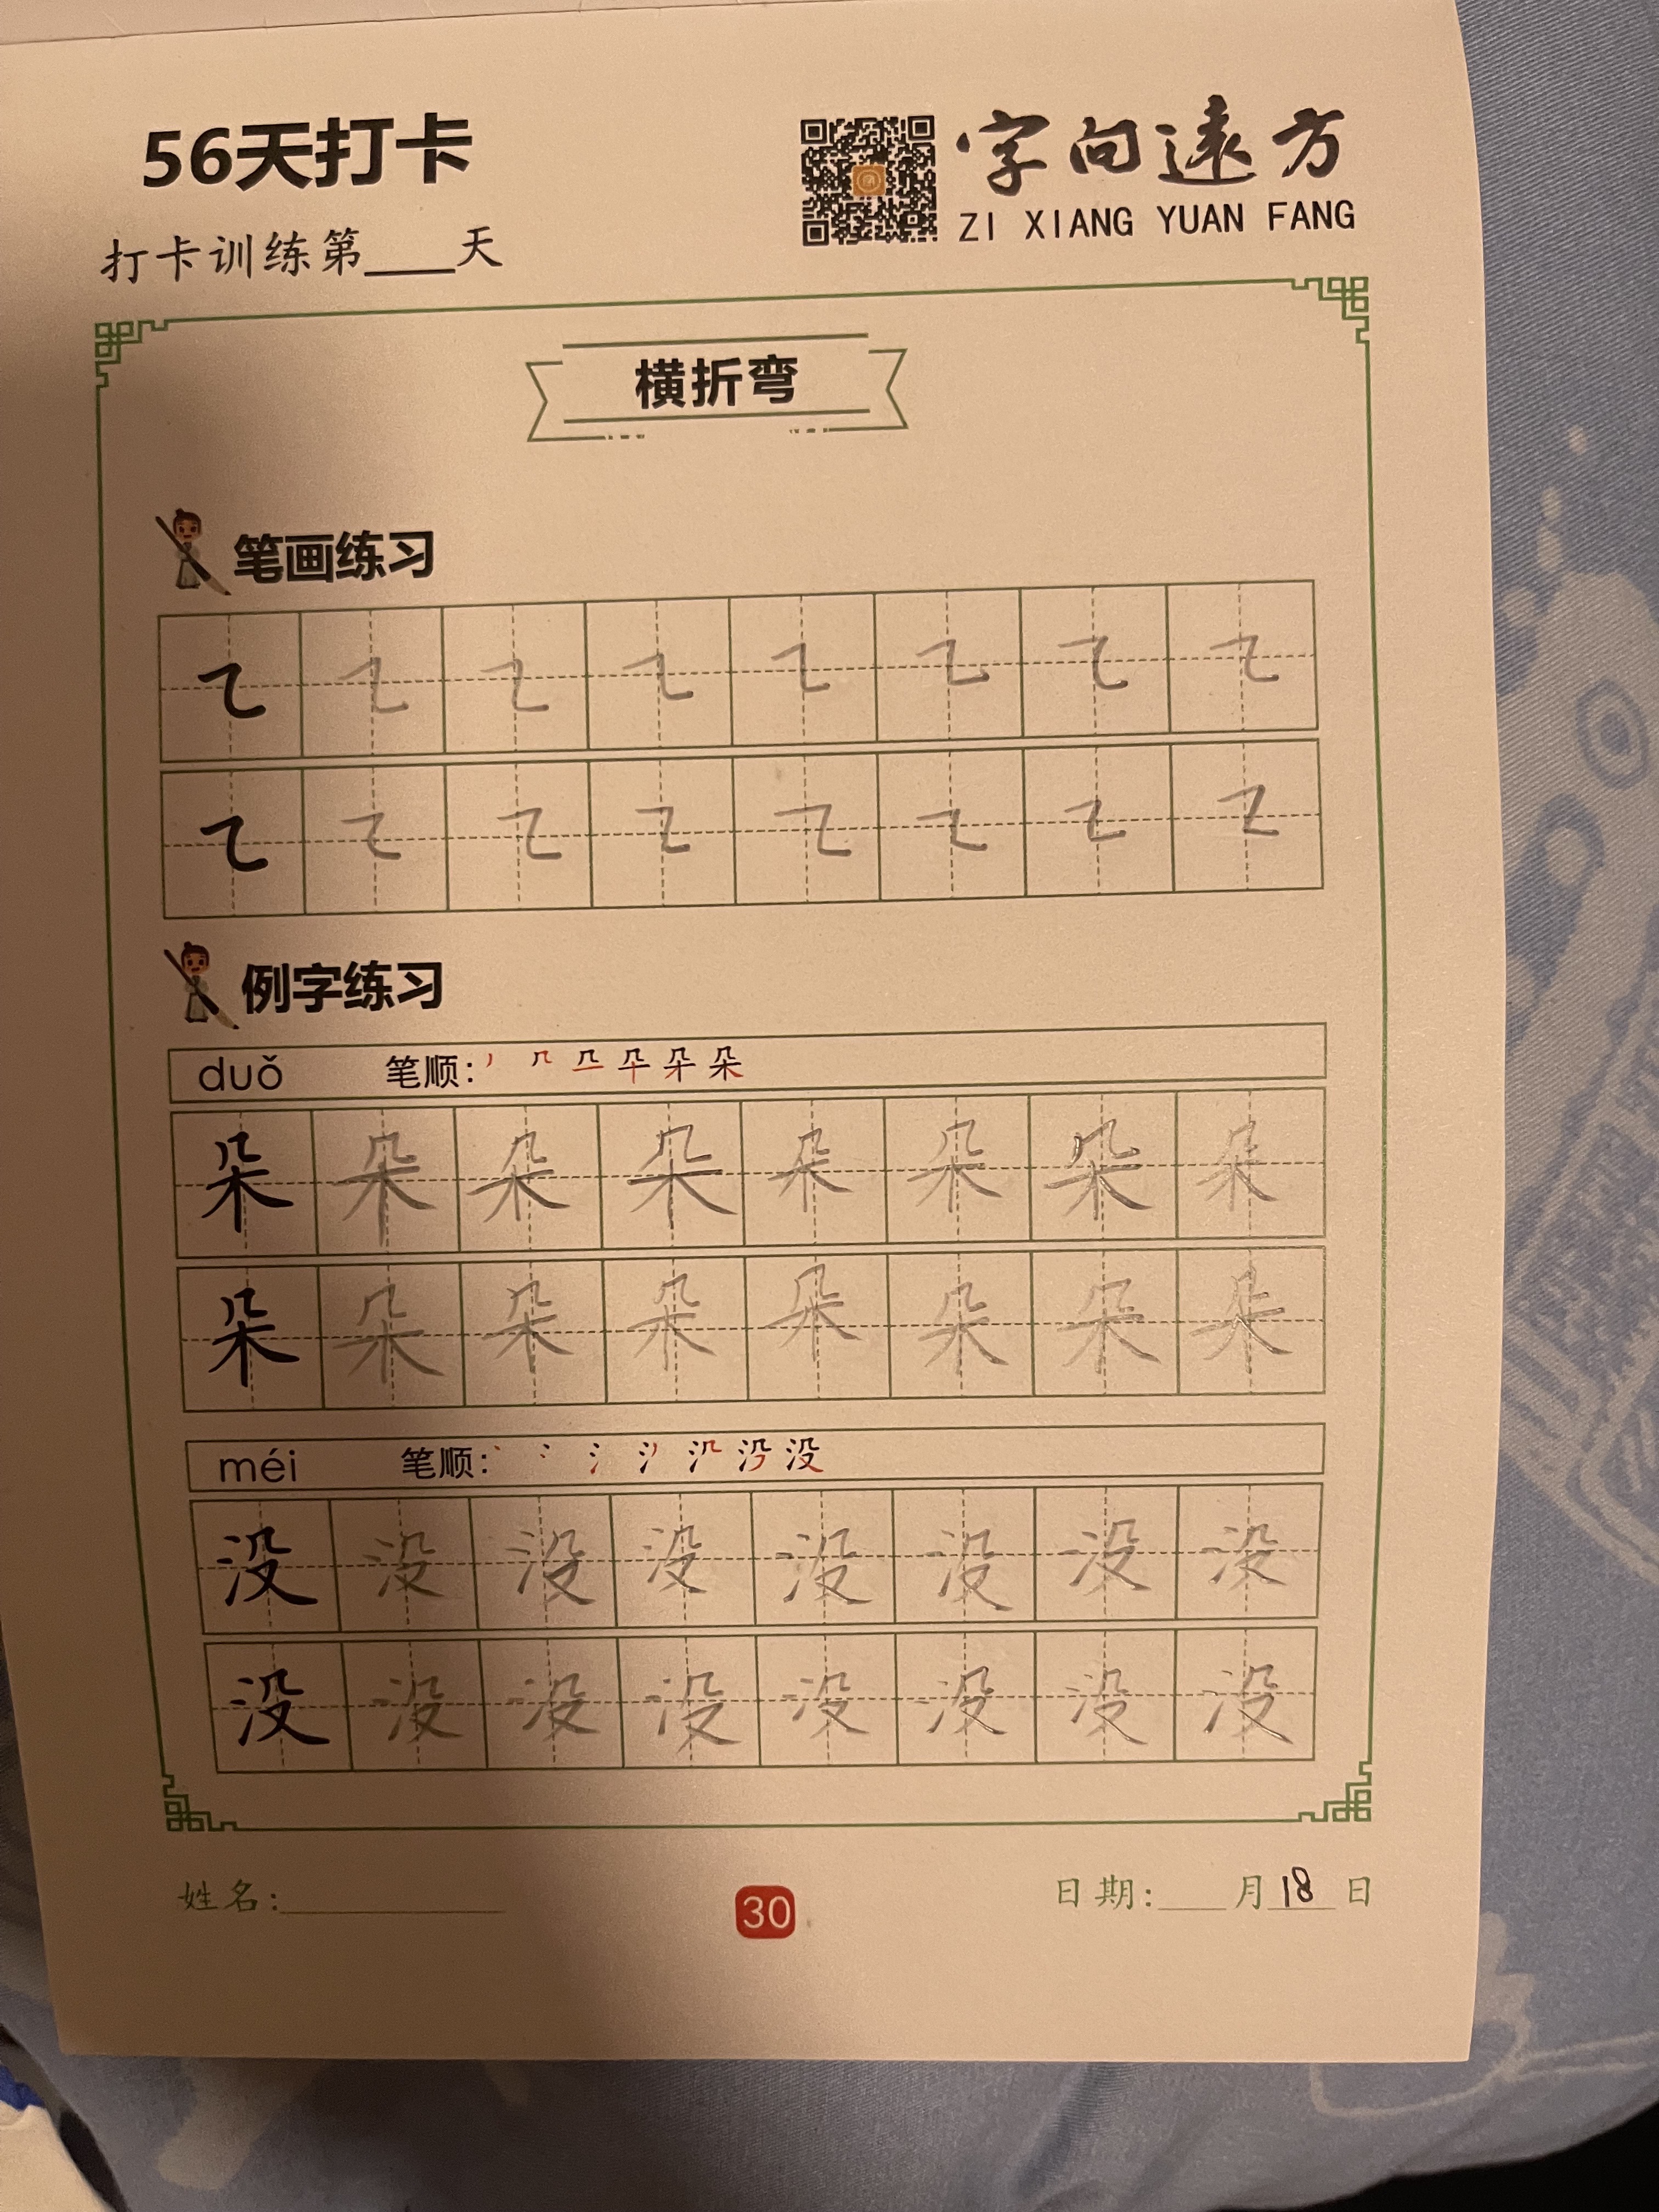 56天打卡
字向遠方
ZI XIANG YUAN FANG
打卡训练第____天
横折弯
笔画练习
㇍ ㇍ ㇍ ㇍ ㇍ ㇍ ㇍ ㇍
㇍ ㇍ ㇍ ㇍ ㇍ ㇍ ㇍ ㇍
例字练习
duǒ 笔顺:
朵 朵 朵 朵 朵 朵 朵 朵
朵 朵 朵 朵 朵 朵 朵 朵
méi 笔顺:
没 没 没 没 没 没 没 没
没 没 没 没 没 没 没 没
姓名:________
30
日期:____月18日